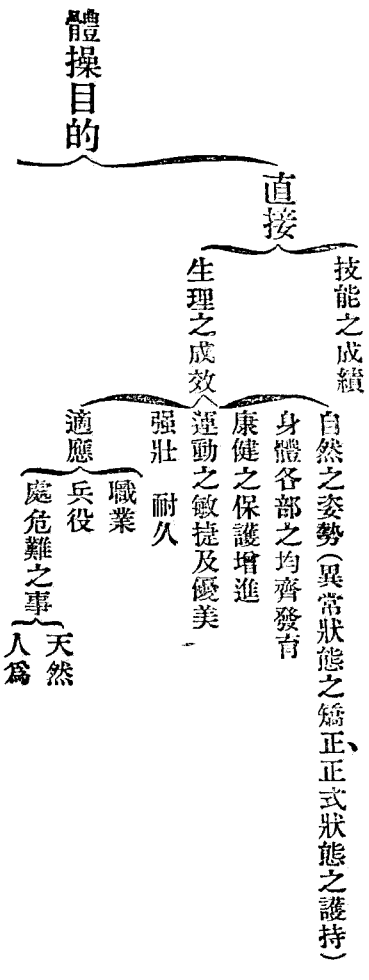 體操目的
直接
技能之成績
生理之成效
自然之姿勢（異常狀態之矯正、正式狀態之護持）
身體各部之均齊發育
康健之保護增進
運動之敏捷及優美
强壯　耐久
適應
職業
兵役
處危難之事
天然
人爲